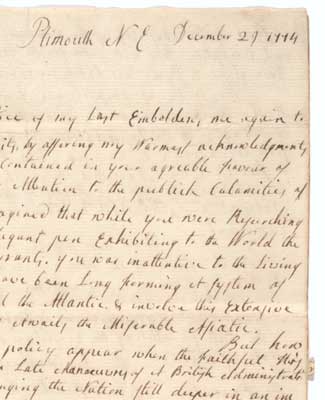 Plimouth N E December 29 1774
of my Last Embolden, me again to
by offering my Warmest acknowledgments
Contained in your agreable favour of
Attention to the publick Calamities of
that while you were Researching
pen Exhibiting to the World the
you was inattentive to the Living
been Long forming A System of
the Atlantic & involve this Extensive
Awaits the Miserable Asiatic.
But how
policy appear when the faithful
Late Manoeuvres of A British
the Nation still deeper in an